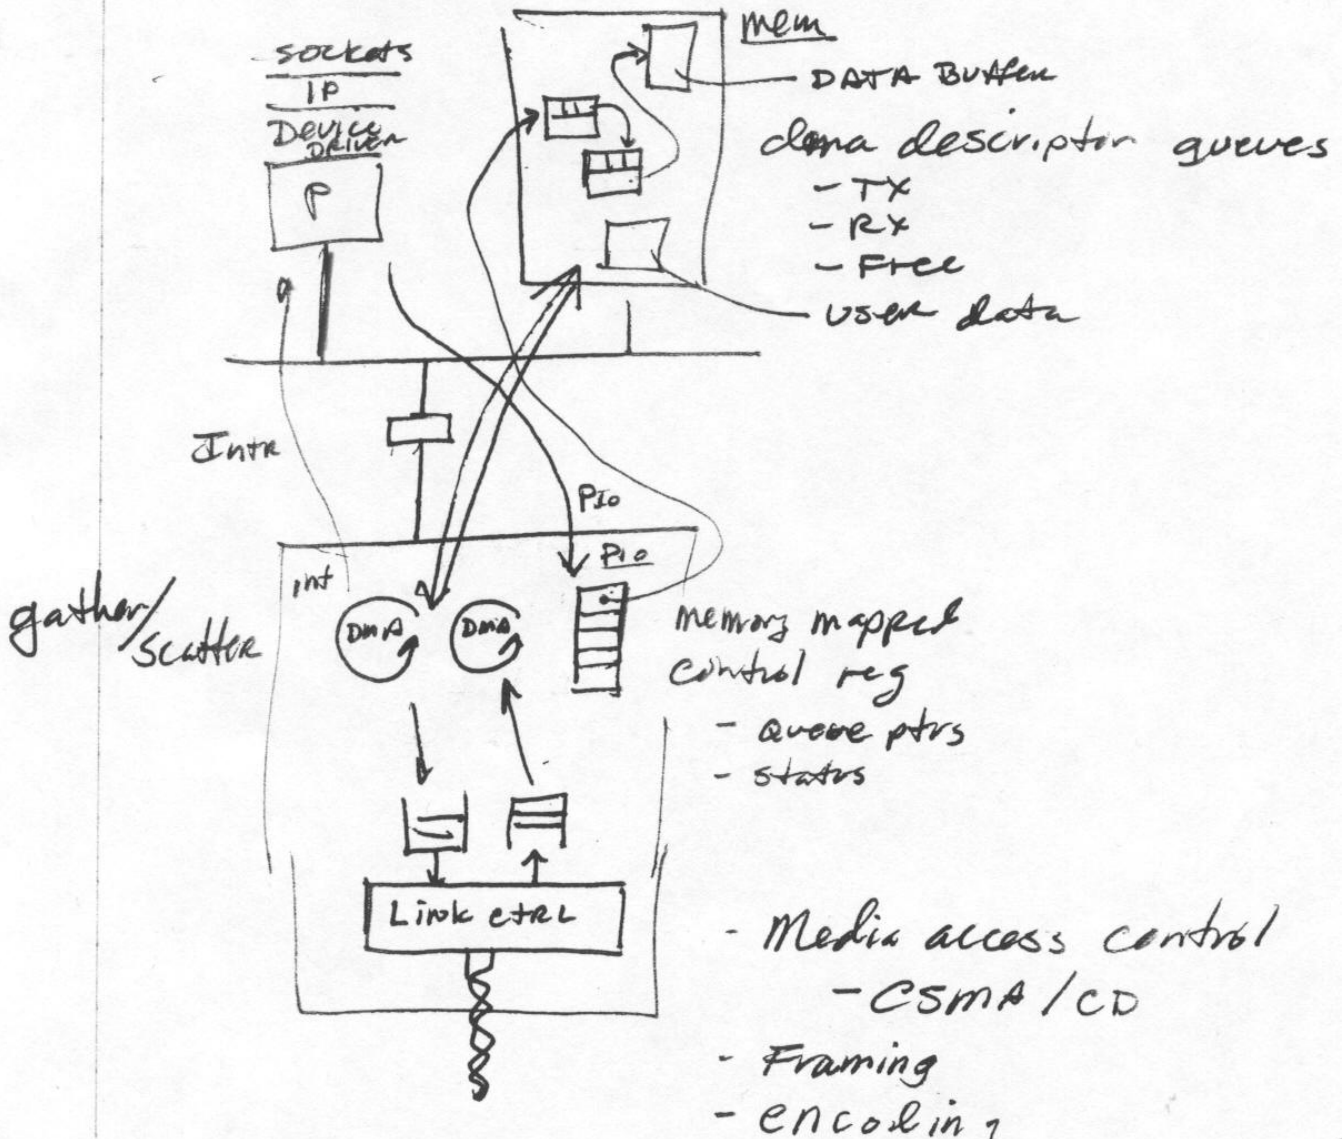 mem
sockets
IP
Device
DRIVER
P
DATA Buffer
dma descriptor queues
- TX
- RX
- Free
user data
Intr
PIO
PIO
int
gather/
scatter
DMA
DMA
memory mapped
control reg
- Queue ptrs
- status
Link ctRL
- Media access control
- CSMA/CD
- Framing
- encoding